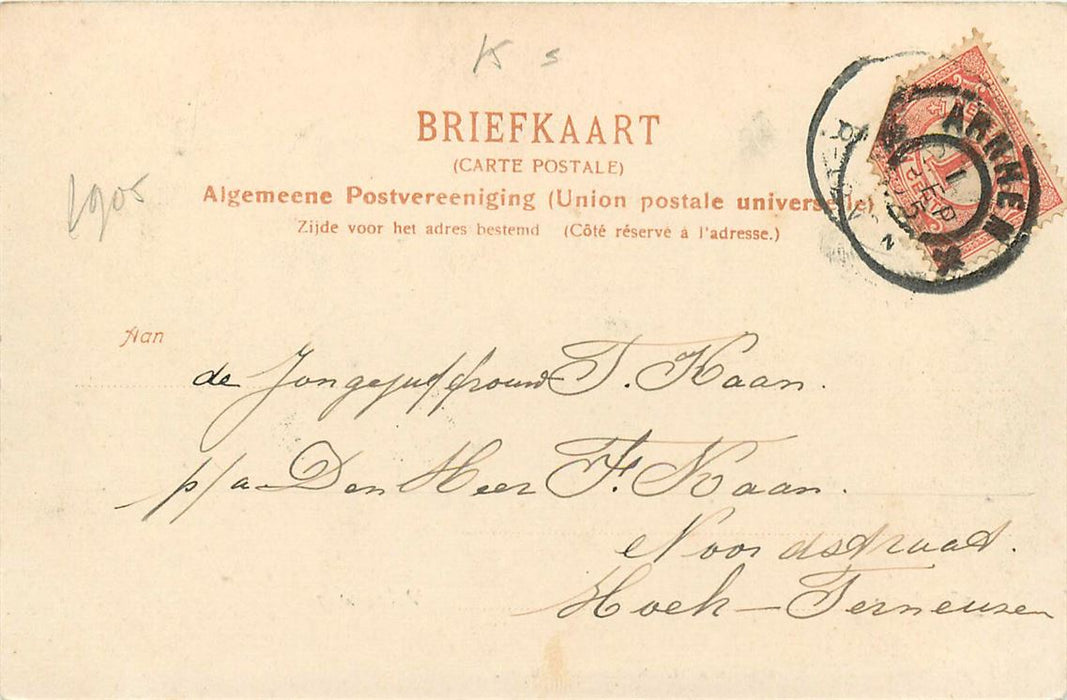 K s
BRIEFKAART
(CARTE POSTALE)
Algemeene Postvereeniging (Union postale universelle)
Zijde voor het adres bestemd (Côté réservé à l'adresse.)
1905
ARNHEM
1
SEP
Aan
de Jongejuffrouw T. Kaan.
p/a Den Heer F. Kaan.
Noordstraat.
Hoek - Terneuzen